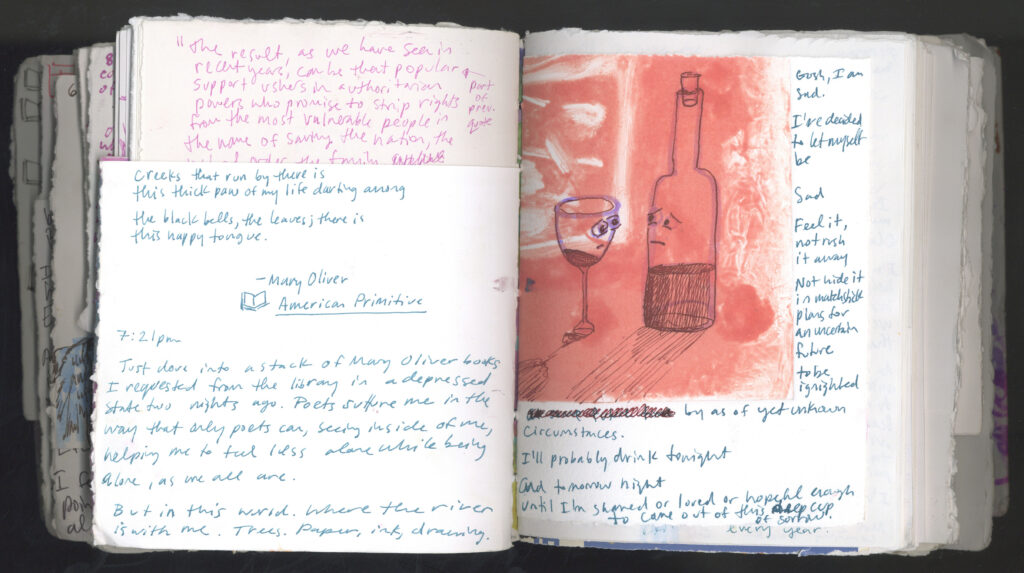 "the result, as we have seen in
recent years, can be that popular
support ushers in authoritarian
powers who promise to strip rights
from the most vulnerable people in
the name of saving the nation, the
order, the family
part
of
prev.
quote
Creeks that run by there is
this thick paw of my life darting among
the black bells, the leaves; there is
this happy tongue.
—Mary Oliver
American Primitive
7:21pm
Just dove into a stack of Mary Oliver books
I requested from the library in a depressed
state two nights ago. Poets suture me in the
way that only poets can, seeing inside of me,
helping me to feel less alone while being
alone, as we all are.
But in this world. Where the river
is with me. Trees. Paper, ink, drawing.
Gosh, I am
Sad.
I've decided
to let myself
be
Sad
Feel it,
not rush
it away
Not hide it
in matchstick
plans for
an uncertain
future
to be
ignighted
by as of yet unknown
Circumstances.
I'll probably drink tonight
And tomorrow night
until I'm shamed or loved or hopeful enough
to come out of this deep cup
of sorrow.
every year.